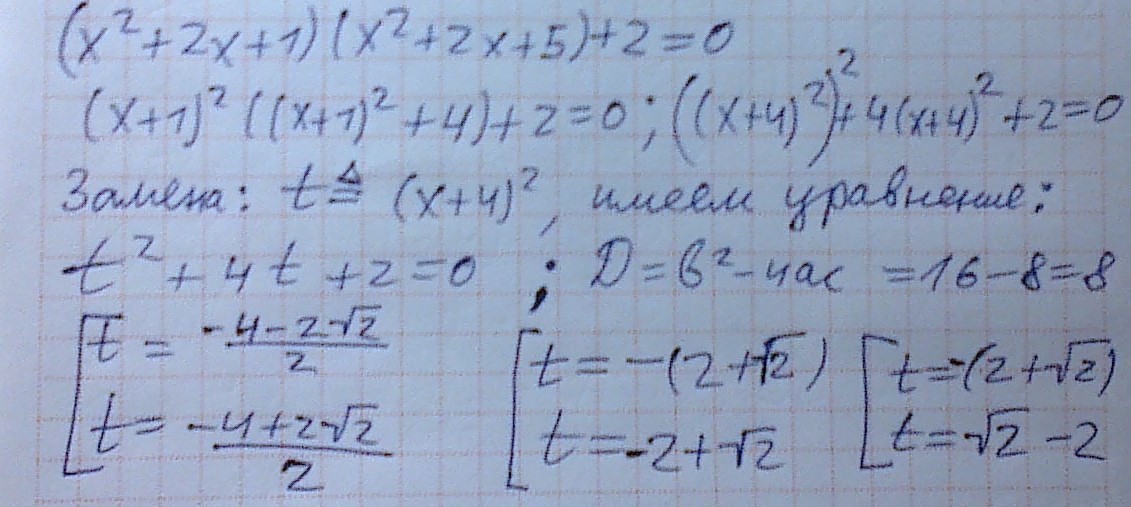 (x²+2x+1)(x²+2x+5)+2=0
(x+1)²((x+1)²+4)+2=0; ((x+4)²)²+4(x+4)²+2=0
Замена: t ≜ (x+4)², имеем уравнение:
t²+4t+2=0 ; D=b²-4ac =16-8=8
[t = (-4-2√2)/2 [t=-(2+√2) [t=-(2+√2)
t = (-4+2√2)/2 t=-2+√2 t=√2-2